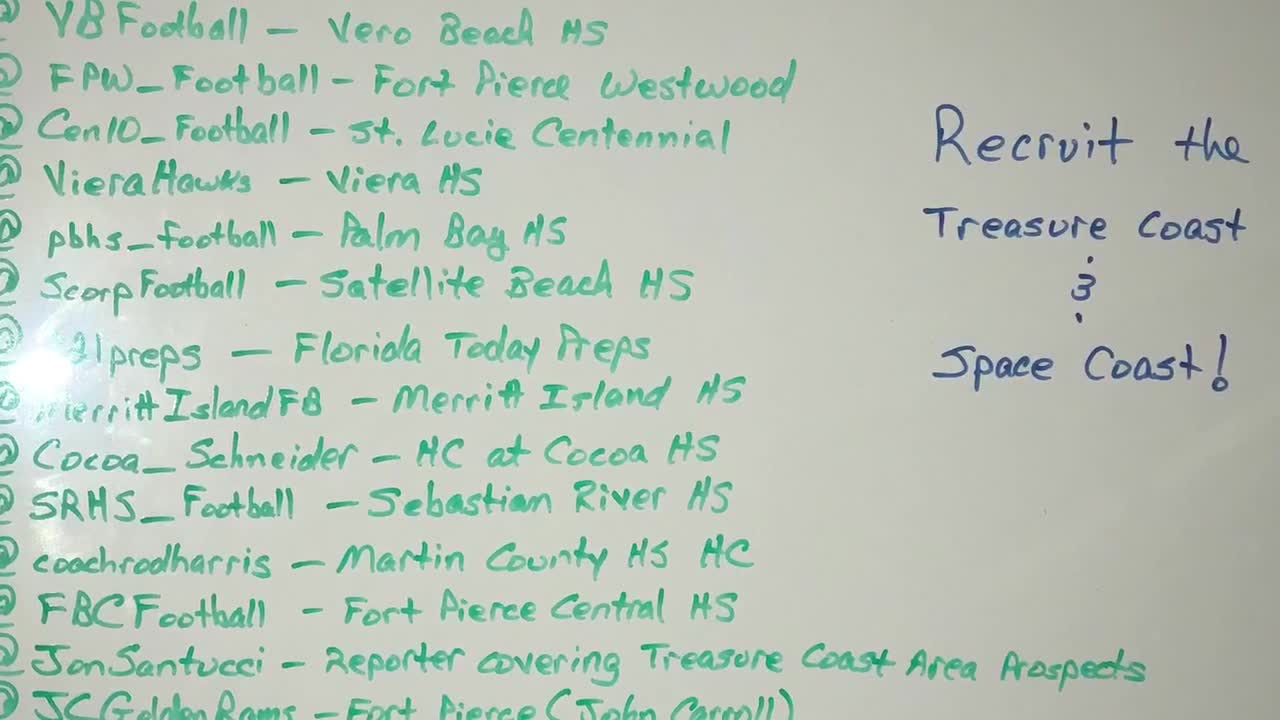 @ VBFootball - Vero Beach HS
@ FPW_Football - Fort Pierce Westwood
@ Cen10_Football - St. Lucie Centennial
@ VieraHawks - Viera HS
@ pbhs_football - Palm Bay HS
@ ScorpFootball - Satellite Beach HS
@ 321preps - Florida Today Preps
@ MerrittIslandFB - Merritt Island HS
@ Cocoa_Schneider - HC at Cocoa HS
@ SRHS_Football - Sebastian River HS
@ coachrodharris - Martin County HS HC
@ FBCFootball - Fort Pierce Central HS
@ JonSantucci - Reporter covering Treasure Coast Area Prospects
@ JCGoldenRams - Fort Pierce (John Carroll)
Recruit the
Treasure Coast
&
Space Coast!